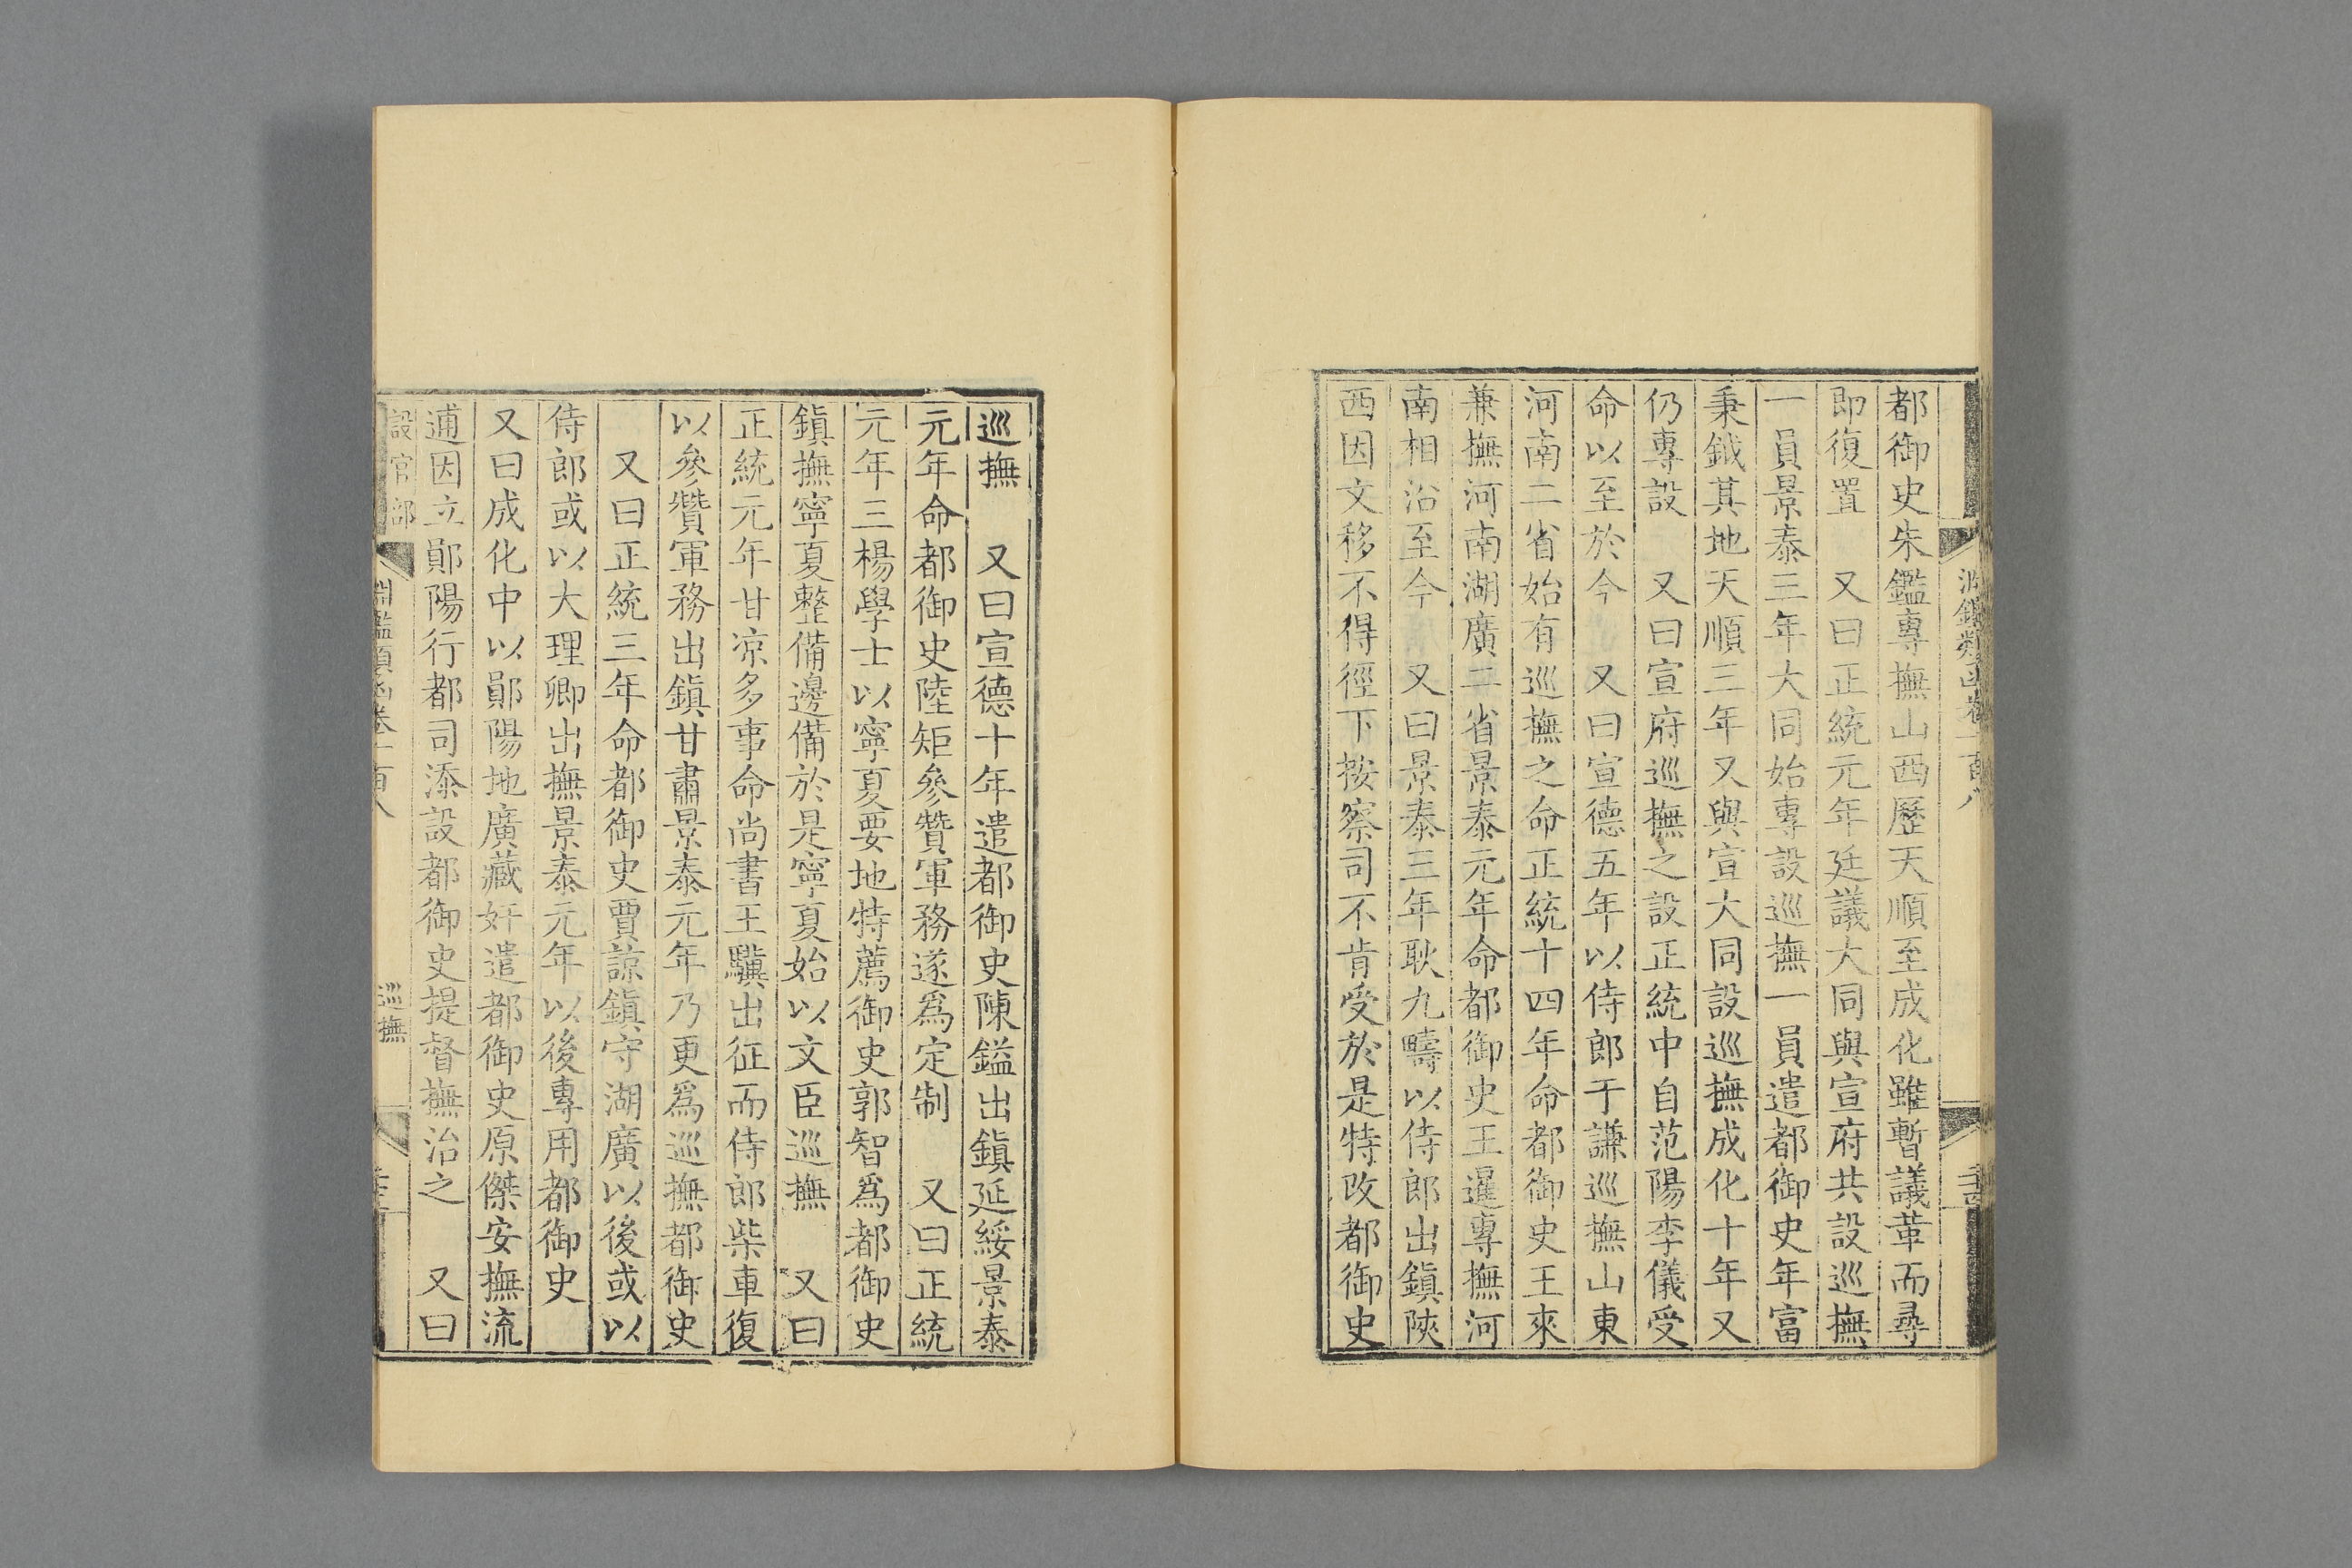 都御史朱鑑專撫山西歷天順至成化雖暫議革而尋
即復置　又曰正統元年廷議大同與宣府共設巡撫
一員景泰三年大同始專設巡撫一員遣都御史年富
秉鉞其地天順三年又與宣大同設巡撫成化十年又
仍專設　又曰宣府巡撫之設正統中自范陽李儀受
命以至於今　又曰宣德五年以侍郎于謙巡撫山東
河南二省始有巡撫之命正統十四年命都御史王來
兼撫河南湖廣二省景泰元年命都御史王暹專撫河
南相沿至今　又曰景泰三年耿九疇以侍郎出鎭陝
西因文移不得徑下按察司不肯受於是特改都御史
巡撫　又曰宣德十年遣都御史陳鎰出鎭延綏景泰
元年命都御史陸矩參贊軍務遂爲定制　又曰正統
元年三楊學士以寧夏要地特薦御史郭智爲都御史
鎭撫寧夏整備邊備於是寧夏始以文臣巡撫　又曰
正統元年甘凉多事命尚書王驥出征而侍郎柴車復
以參贊軍務出鎭甘肅景泰元年乃更爲巡撫都御史
又曰正統三年命都御史賈諒鎭守湖廣以後或以
侍郎或以大理卿出撫景泰元年以後專用都御史
又曰成化中以鄖陽地廣藏奸遣都御史原傑安撫流
逋因立鄖陽行都司添設都御史提督撫治之　又曰
設官部
淵鑑類函卷一百八
巡撫